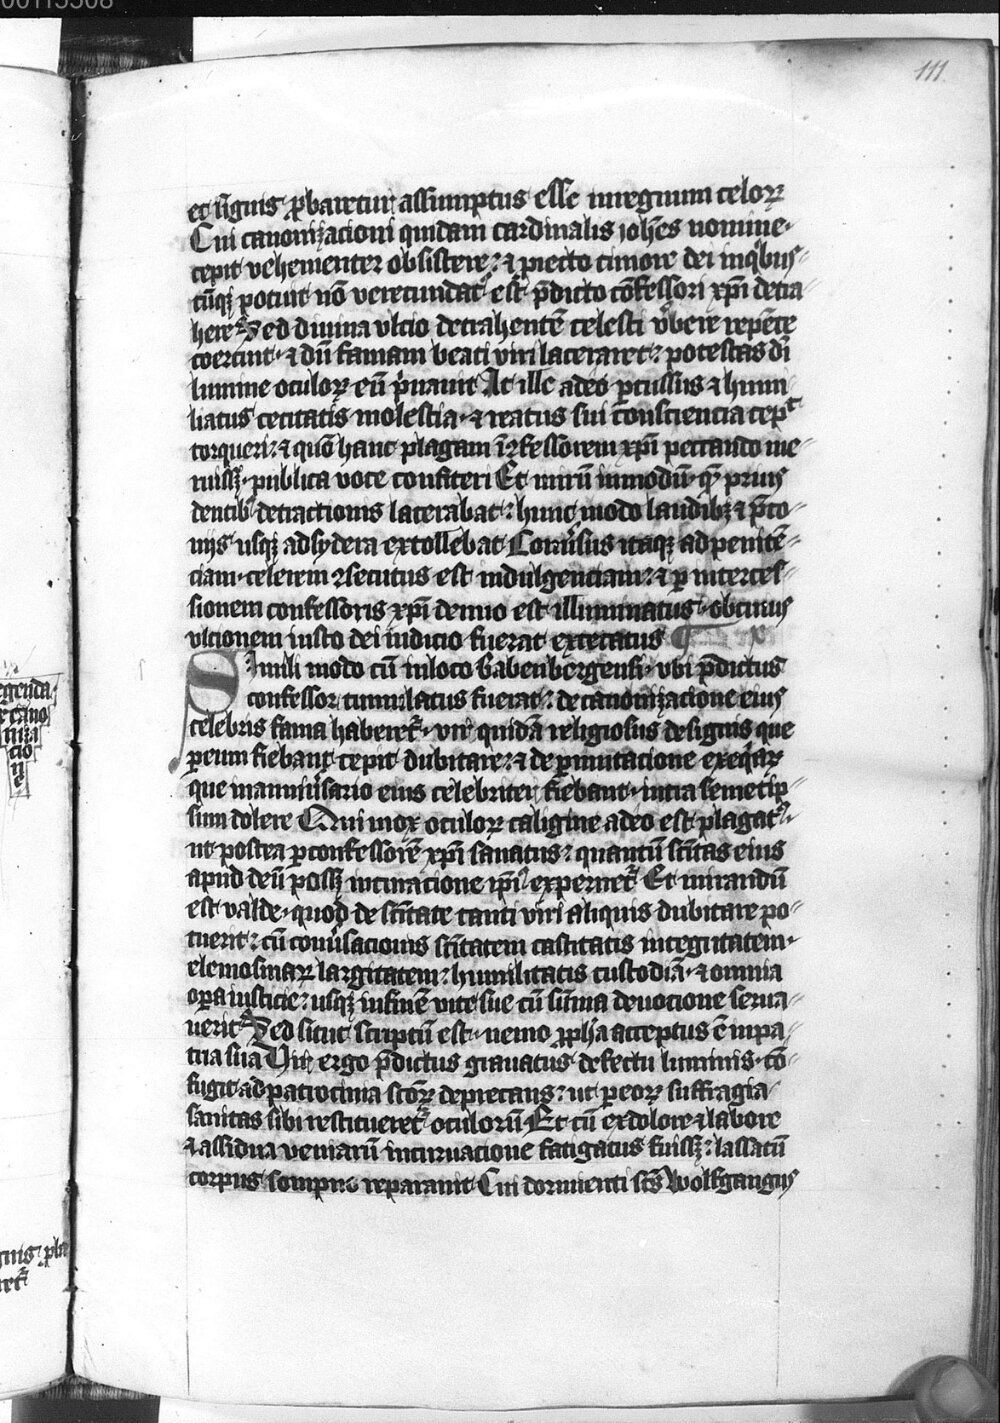 00113308
111
et signis ꝓbaretur assumptus esse in regnum celoꝝ
Cui canonizacioni quidam cardinalis joh̄es nomine·
cepit vehementer obsistere: ⁊ piecto timore dei in qͥbus
cūqꝫ potuit nō verecundatꝰ est p̄dicto cōfessori xp̄i detra
here Sed diuina vlcio detrahentē celesti v̓bere repēte
coercuit· ⁊ dū famam beati viri laceraret: potestas dn̄i
lumine oculoꝝ eū pͥuauit At ille adeo ꝑcussus ⁊ humi
liatus cecitatis molestia· ⁊ reatus sui cōnsciencia cepͭ
torqueri: ⁊ quō hanc plagam in ꝯfessorem xp̄i peccando me
ruissꝫ· publica voce confiteri Et mirū inmodū· qͤ prius
dentibꝰ detractionis lacerabat: hunc modo laudibꝫ ⁊ p̄co
nijs usqꝫ ad sydera extollebat Conu̓sus itaqꝫ ad penitē
ciam· celerem ꝯsecutus est indulgenciam: ⁊ ꝑ interces
sionem confessoris xp̄i denuo est illuminatus· ob cuius
vlcionem iusto dei iudicio fuerat excecatus
Simili modo cū in loco Babenbergensi· vbi p̄dictus
confessor tumulatus fuerat: de canonizacione eius
celebris fama haberet᷑· vir quidā religiosus de signis que
ꝑ eum fiebant cepit dubitare: ⁊ de ꝑmutacione exeqͥaꝝ
que in anniu̓sario eius celebriter fiebant· intra semetip
sum dolere Qui mox oculoꝝ caligine adeo est plagatꝰ·
ut postea ꝑ confessorē xp̄i sanatus: quantū sc̄itas eius
apud deū possꝫ in curacione ip̄i experiret᷑ Et mirandū
est valde· quod de sc̄itate tanti viri aliquis dubitare po
tuerit: cū conu̓sacionis sc̄itatem castitatis integritatem·
elemosinaꝝ largitatem: humilitatis custodiā· ⁊ omnia
oꝑa iusticie: usqꝫ in finē vite sue cū su̅ma deuocione serua
uerit Sed sicut scriptū est· nemo ꝓph̄a acceptus ē in pa
tria sua Vir ergo p̄dictus grauatus defectu luminis· cō
fugit ad patrocinia sc̄oꝝ deprecans: ut ꝑ eoꝝ suffragia
sanitas sibi restitueret᷑ oculorū Et cū ex dolore ⁊ labore
⁊ assidua veniarū incuruacione fatigatus fuissꝫ: lassatū
corpus sompno reparauit Cui dormienti sc̄s Wolfgangus